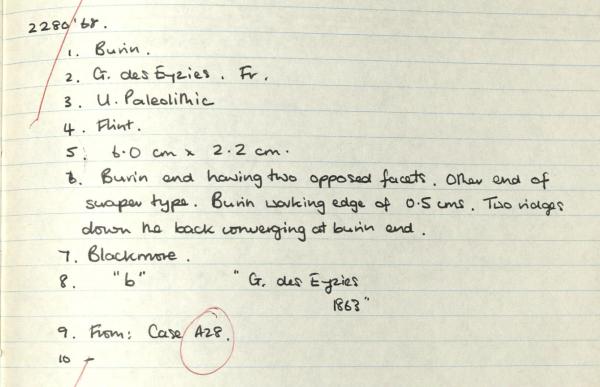 2280'68.
1. Burin.
2. G. des Eyzies. Fr.
3. U. Paleolithic
4. Flint.
5. 6.0 cm x 2.2 cm.
6. Burin end having two opposed facets. Other end of
scraper type. Burin working edge of 0.5 cms. Two ridges
down the back converging at burin end.
7. Blackmore.
8. "b" "G. des Eyzies
1863"
9. From: Case A28.
10 –